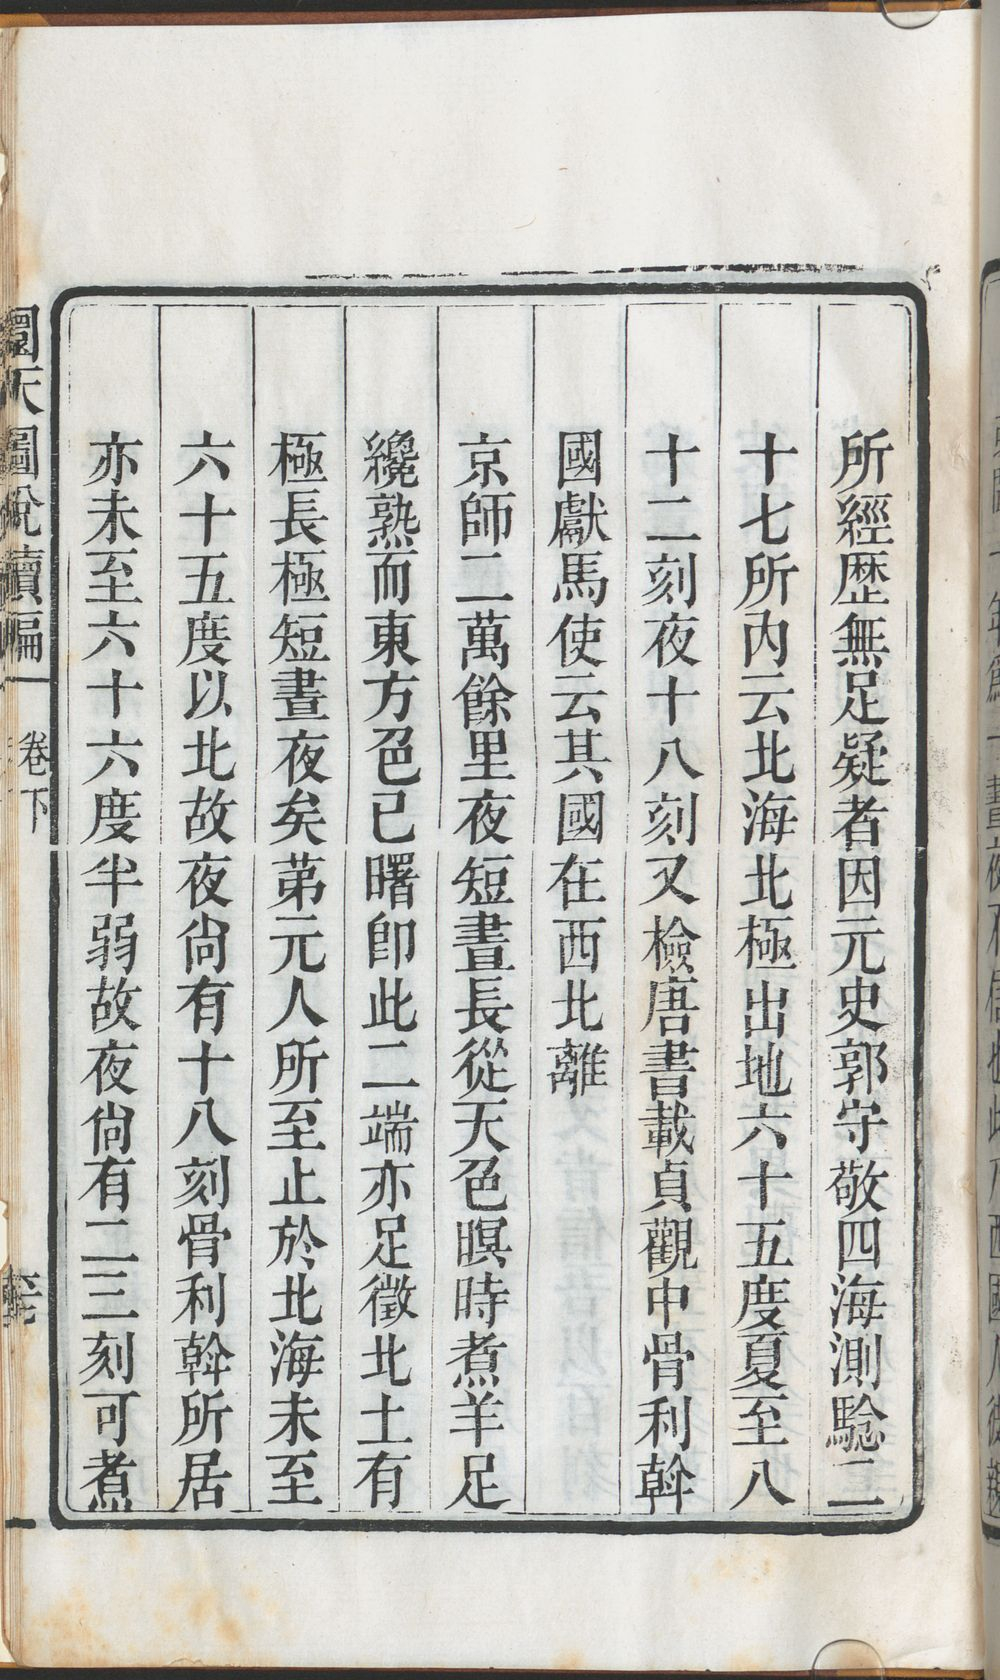 所經歴無足疑者因元史郭守敬四海測騐二
十七所内云北海北極出地六十五度夏至八
十二刻夜十八刻又檢唐書載貞觀中骨利斡
國獻馬使云其國在西北離
京師二萬餘里夜短晝長從天色暝時煮羊足
纔熟而東方色已曙卽此二端亦足徵北土有
極長極短晝夜矣苐元人所至止於北海未至
六十五度以北故夜尙有十八刻骨利斡所居
亦未至六十六度半弱故夜尙有二三刻可煮
圜天圖說續編
卷下